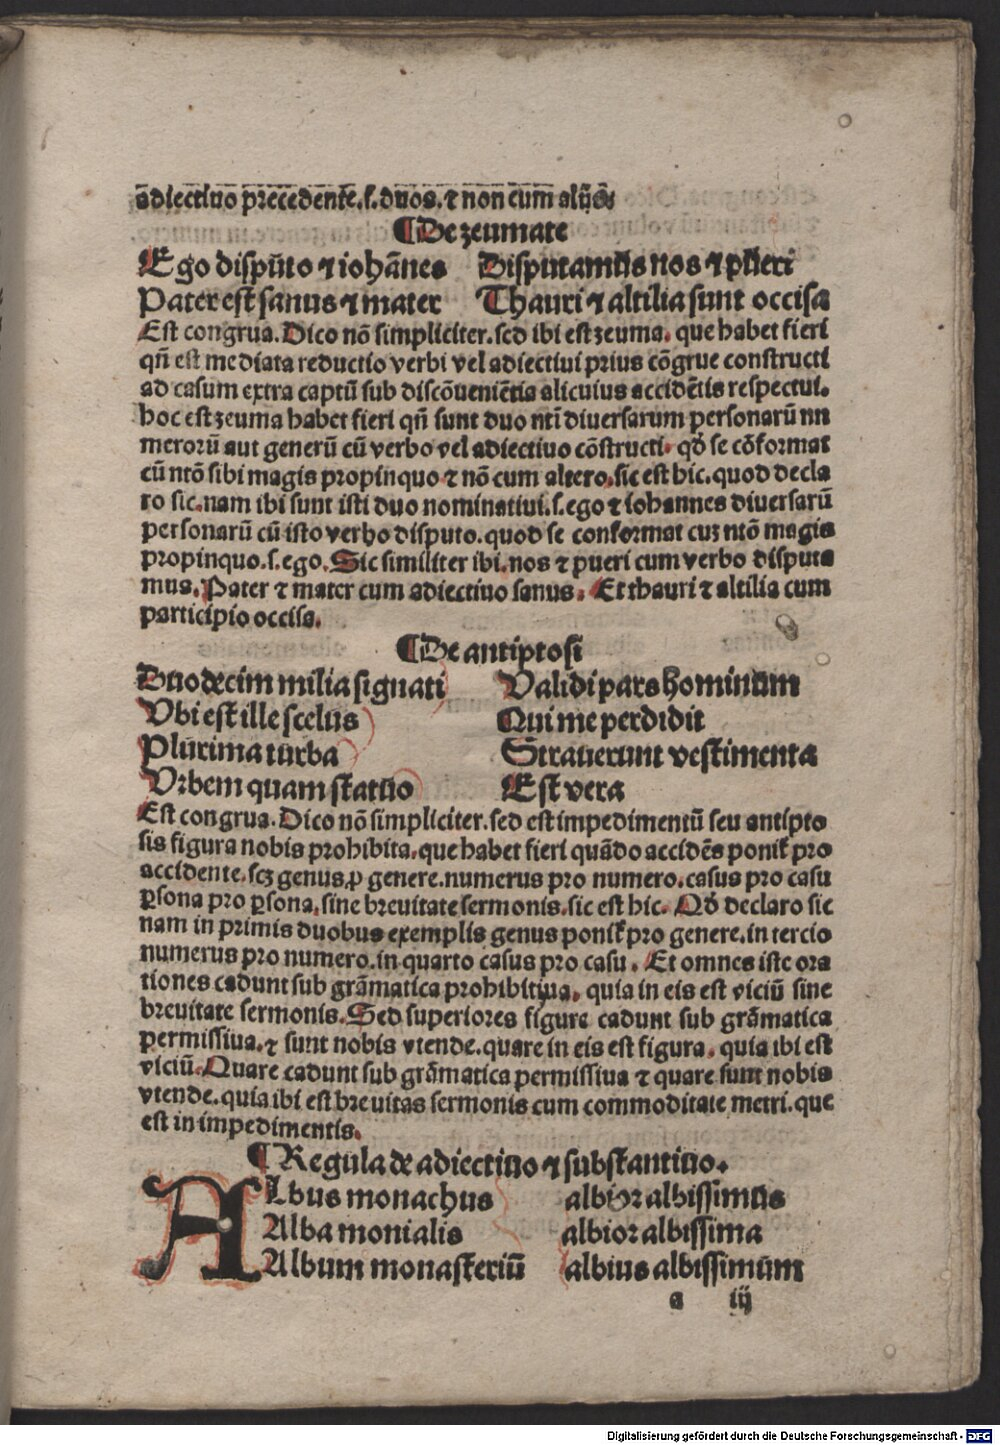 adiectiuo p̄recedente.ſ.duos.⁊ non cum alijs
¶De zeumate
Ego diſputo ⁊ iohānes Diſputamus nos ⁊ pueri
Pater eſt ſanus ⁊ mater Thauri ⁊ altilia ſunt occiſa
Eſt congrua. Dico nō ſimpliciter. ſed ibi eſt zeuma. que habet fieri
qn̄ eſt mediata reductio verbi vel adiectiui prius cōgrue conſtructi
ad caſum extra captū ſub diſcōueniētia alicuius accidētis reſpectui.
hoc eſt zeuma habet fieri qn̄ ſunt duo ntī diuerſarum perſonarū nu
merorū aut generū cū verbo vel adiectiuo cōſtructi. qd̄ ſe cōformat
cū ntō ſibi magis propinquo ⁊ nō cum altero. ſic eſt hic. quod decla
ro ſic. nam ibi ſunt iſti duo nominatiui.ſ.ego ⁊ iohannes diuerſarū
perſonarū cū iſto verbo diſputo. quod ſe conformat cuz ntō magis
propinquo.ſ.ego. Sic ſimiliter ibi. nos ⁊ pueri cum verbo diſputa
mus. Pater ⁊ mater cum adiectiuo ſanus. Et thauri ⁊ altilia cum
participio occiſa.
¶De antiptoſi
Duodecim milia ſignati Validi pars hominum
Vbi eſt ille ſcelus Qui me perdidit
Plurima turba Strauerunt veſtimenta
Vrbem quam ſtatuo Eſt vera
Eſt congrua. Dico nō ſimpliciter. ſed eſt impedimentū ſeu antipto
ſis figura nobis prohibita. que habet fieri quādo accidēs ponit̄ pro
accidente. ſcz genus ꝓ genere. numerus pro numero. caſus pro caſu
ꝑſona pro ꝑſona. ſine breuitate ſermonis. ſic eſt hic. Qd̄ declaro ſic
nam in primis duobus exemplis genus ponit̄ pro genere. in tercio
numerus pro numero. in quarto caſus pro caſu. Et omnes iſte ora
tiones cadunt ſub grāmatica prohibitiua. quia in eis eſt viciū ſine
breuitate ſermonis. Sed ſuperiores figure cadunt ſub grāmatica
permiſſiua. ⁊ ſunt nobis vtende. quare in eis eſt figura. quia ibi eſt
viciū. Quare cadunt ſub grāmatica permiſſiua ⁊ quare ſunt nobis
vtende. quia ibi eſt breuitas ſermonis cum commoditate metri. que
eſt in impedimentis.
¶Regula de adiectiuo ⁊ ſubſtantiuo.
ALbus monachus albior albiſſimus
Alba monialis albior albiſſima
Album monaſteriū albius albiſſimum
a iij
Digitalisierung gefördert durch die Deutsche Forschungsgemeinschaft - DFG